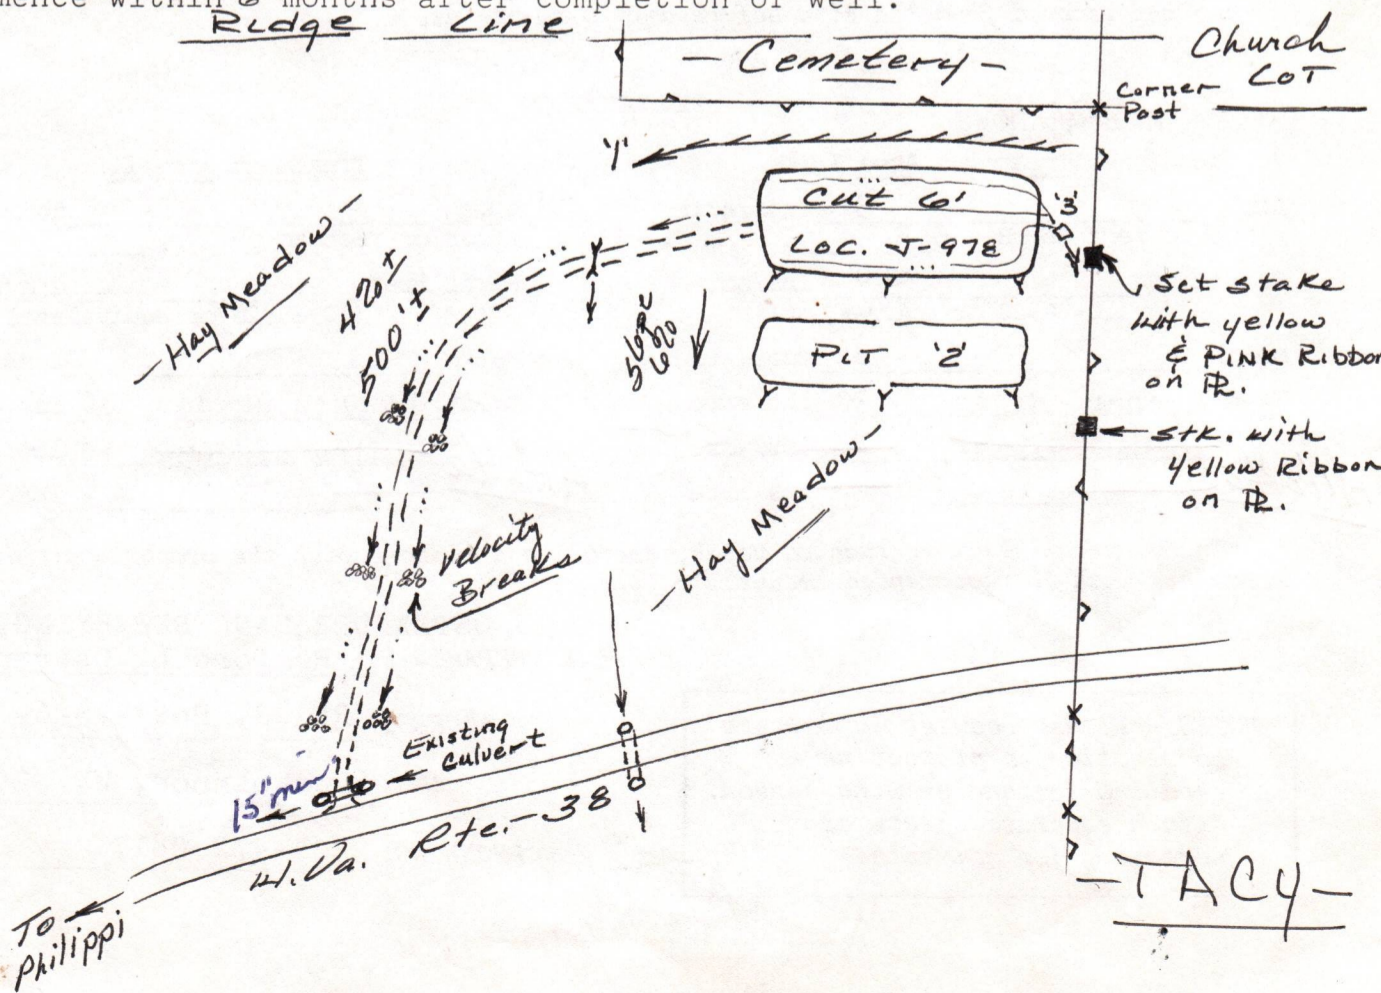 mence within 6 months after completion of well.
Ridge Line
- Cemetery -
Church
LOT
Corner
Post
'1'
Cut 6'
LOC. J-978
'3'
Set stake
with yellow
& PINK Ribbon
on PL.
PIT '2'
stk. with
yellow Ribbon
on PL.
- Hay Meadow -
420' ±
500' ±
- Hay Meadow -
velocity
Breaks
Existing
Culvert
15" min
W. Va. Rte. - 38
To
Philippi
- TACY -